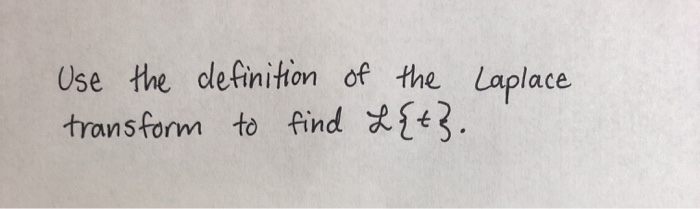 Use the definition of the Laplace
transform to find ℒ{t}.